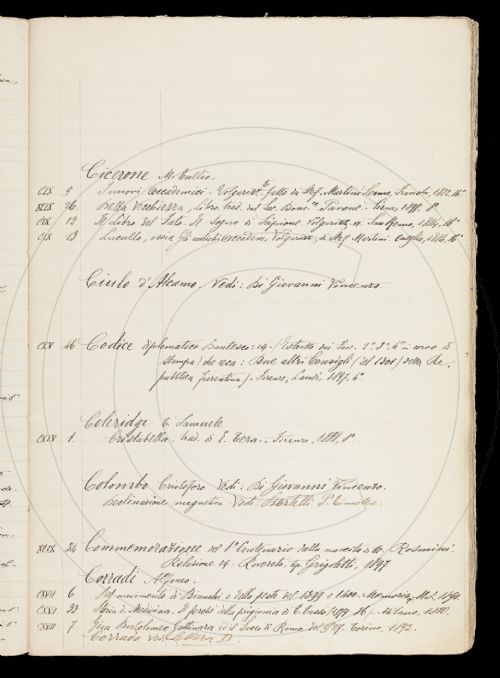 Cicerone M. Tullio
CLX 9 I nuovi Accademici. Volgarizz.to fatto da Stef. Martini Como, Franchi, 1882. 16°
XLIX 26. Della Vecchiezza, Libro trad. dal Sac. Pavone. Siena, 1897. 8°
CLX 12 Il Libro del Fato. Il Sogno di Scipione. Volgarizz. San Remo, 16°
CLX 13 Lucullo, ossia Gli antichi Accademici, Volgarizz. di Stef. Martini. Oneglia, 1884. 16°
Ciulo d'Alcamo, Vedi: Di Giovanni Vincenzo
CXV 46 Codice diplomatico Dantesco: (Estratto dei fasc. 2° 3° 4° in corso di
stampa) che reca: Due altri Consigli (del 1301) della Re-
pubblica fiorentina). Firenze, Landi, 1897. 4°
Coleridge T. Samuele
CXIV 1. Cristabella. trad. di E. Teza. Firenze, 1888, 8°
Colombo Cristoforo Vedi: Di Giovanni Vincenzo.
Declinazione magnetica Vedi Bertelli P. Timoteo.
XLIX 34 Commemorazione del 1° Centenario dalla nascita di A. Rosmini.
Relazione Rovereto, tip. Grigoletti, 1897
Corradi Alfonso.
6 Del movimento di Bianchi e della peste del 1399 e 1400. Memoria, Mil. 1891.
CXVI 33 Storia di Medicina. Le prigionia di T. Tasso (1579-86). Milano, 1880.
CXVII 7 Gian Bartolomeo Gattinara ed il Sacco di Roma del 1527. Torino, 1892.
Corrado Vedi Lettera D.